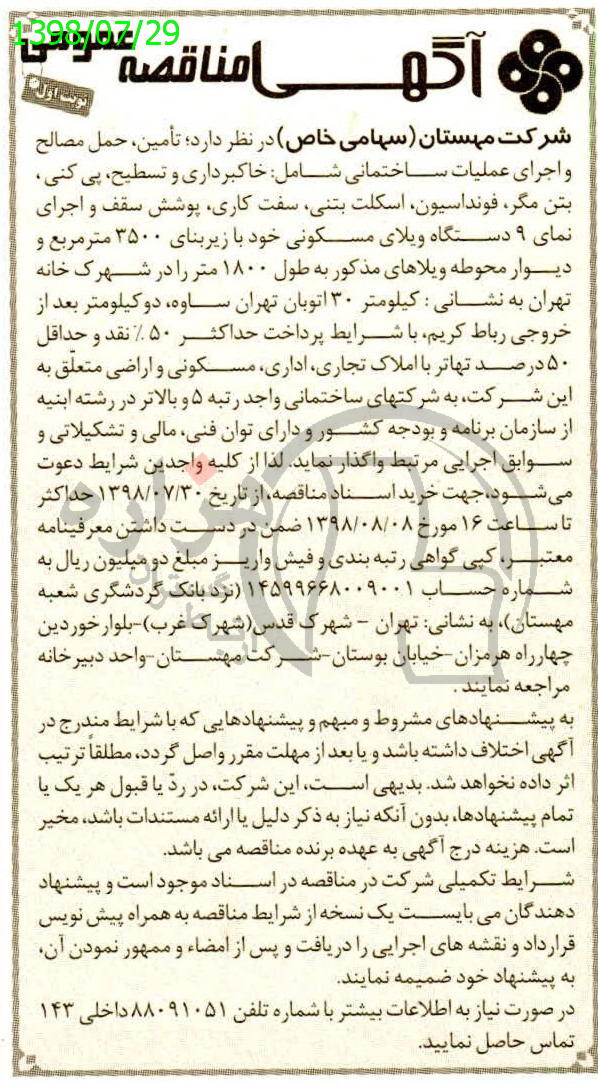 1398/07/29
آگهی مناقصه عمومی
نوبت اول
شرکت مهستان (سهامی خاص) در نظر دارد؛ تأمین، حمل مصالح
و اجرای عملیات ساختمانی شامل: خاکبرداری و تسطیح، پی کنی،
بتن مگر، فونداسیون، اسکلت بتنی، سفت کاری، پوشش سقف و اجرای
نمای ۹ دستگاه ویلای مسکونی خود با زیربنای ۳۵۰۰ مترمربع و
دیوار محوطه ویلاهای مذکور به طول ۱۸۰۰ متر را در شهرک خانه
تهران به نشانی: کیلومتر ۳۰ اتوبان تهران ساوه، دو کیلومتر بعد از
خروجی رباط کریم، با شرایط پرداخت حداکثر ۵۰٪ نقد و حداقل
۵۰ درصد تهاتر با املاک تجاری، اداری، مسکونی و اراضی متعلّق به
این شرکت، به شرکتهای ساختمانی واجد رتبه ۵ و بالاتر در رشته ابنیه
از سازمان برنامه و بودجه کشور و دارای توان فنی، مالی و تشکیلاتی و
سوابق اجرایی مرتبط واگذار نماید. لذا از کلیه واجدین شرایط دعوت
می‌شود، جهت خرید اسناد مناقصه، از تاریخ ۱۳۹۸/۰۷/۳۰ حداکثر
تا ساعت ۱۶ مورخ ۱۳۹۸/۰۸/۰۸ ضمن در دست داشتن معرفینامه
معتبر، کپی گواهی رتبه بندی و فیش واریز مبلغ دو میلیون ریال به
شماره حساب ۱۴۵۹۹۶۶۸۰۰۹۰۰۱ (نزد بانک گردشگری شعبه
مهستان)، به نشانی: تهران - شهرک قدس(شهرک غرب)-بلوارخوردین
چهارراه هرمزان-خیابان بوستان-شرکت مهستان-واحد دبیرخانه
مراجعه نمایند.
به پیشنهادهای مشروط و مبهم و پیشنهادهایی که با شرایط مندرج در
آگهی اختلاف داشته باشد و یا بعد از مهلت مقرر واصل گردد، مطلقاً ترتیب
اثر داده نخواهد شد. بدیهی است، این شرکت، در ردّ یا قبول هر یک یا
تمام پیشنهادها، بدون آنکه نیاز به ذکر دلیل یا ارائه مستندات باشد، مخیر
است. هزینه درج آگهی به عهده برنده مناقصه می باشد.
شرایط تکمیلی شرکت در مناقصه در اسناد موجود است و پیشنهاد
دهندگان می بایست یک نسخه از شرایط مناقصه به همراه پیش نویس
قرارداد و نقشه های اجرایی را دریافت و پس از امضاء و ممهور نمودن آن،
به پیشنهاد خود ضمیمه نمایند.
در صورت نیاز به اطلاعات بیشتر با شماره تلفن ۸۸۰۹۱۰۵۱ داخلی ۱۴۳
تماس حاصل نمایید.